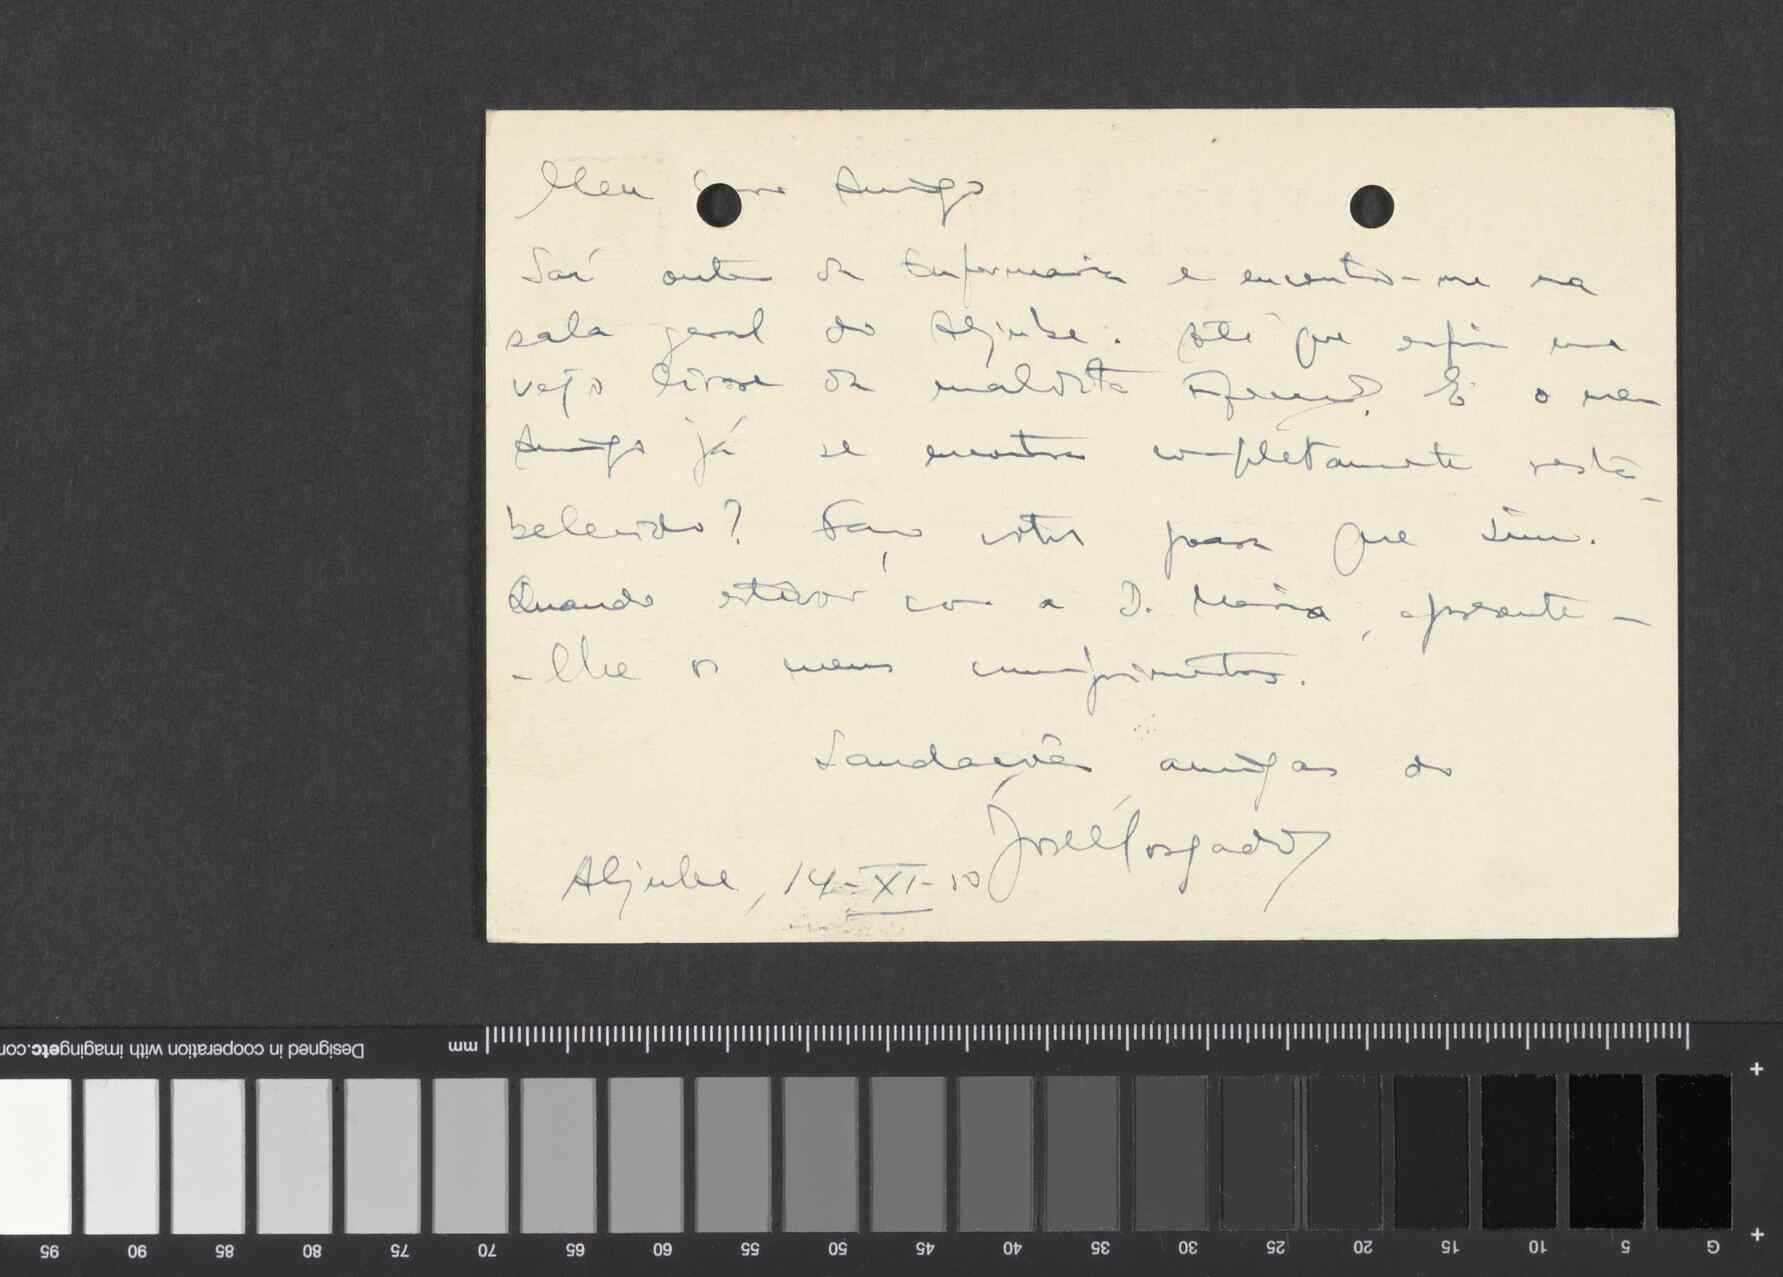 Meu Caro Amigo
Saí ontem da Enfermaria e encontro-me na
sala geral do Aljube. Até que enfim me
vejo livre da maldita E o meu
Amigo já se encontra completamente resta-
belecido? Faço votos para que sim.
Quando estiver com a D. Maria, apresente-
-lhe os meus cumprimentos.
Saudações amigas do
José Morgado
Aljube, 14-XI-50
mm
Designed in cooperation with imagingetc.com
95 90 85 80 75 70 65 60 55 50 45 40 35 30 25 20 15 10 5 G